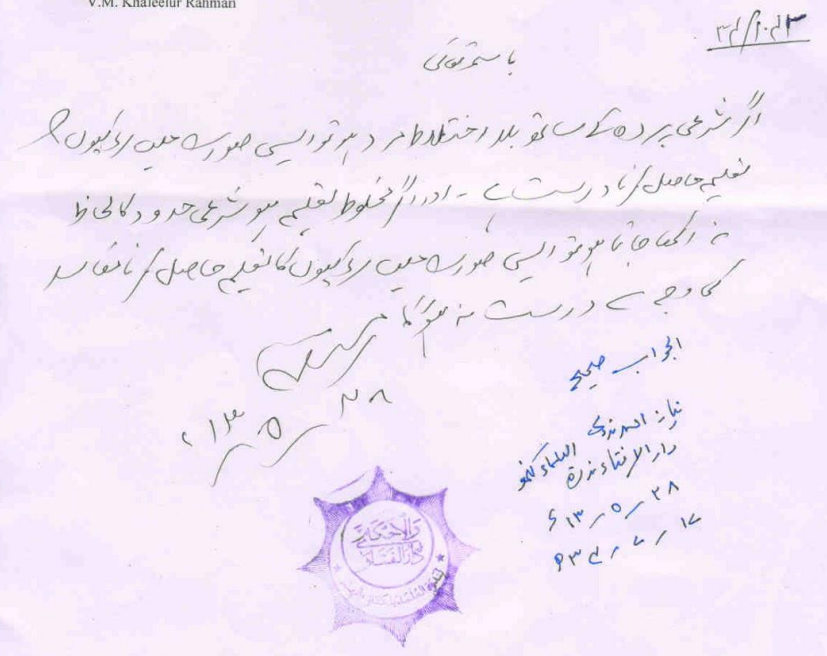 V.M. Khaleelur Rahman
باسمہ تعالیٰ
اگر شرعی پردہ کے ساتھ بلا اختلاط مرد ہو تو ایسی صورت میں لڑکیوں کا
تعلیم حاصل کرنا درست ہے - اور اگر مخلوط تعلیم ہو شرعی حدود کا لحاظ
نہ رکھا جاتا ہو تو ایسی صورت میں لڑکیوں کا تعلیم حاصل کرنا مفاسد
کی وجہ سے درست نہ ہوگا
۲۸ - ۵ - ۱۳ء
الجواب صحیح
نیاز احمد ندوی
دارالافتاء ندوۃ العلماء لکھنؤ
۲۸ - ۵ - ۱۳ء
۱۷ - ۷ - ۳۴ھ